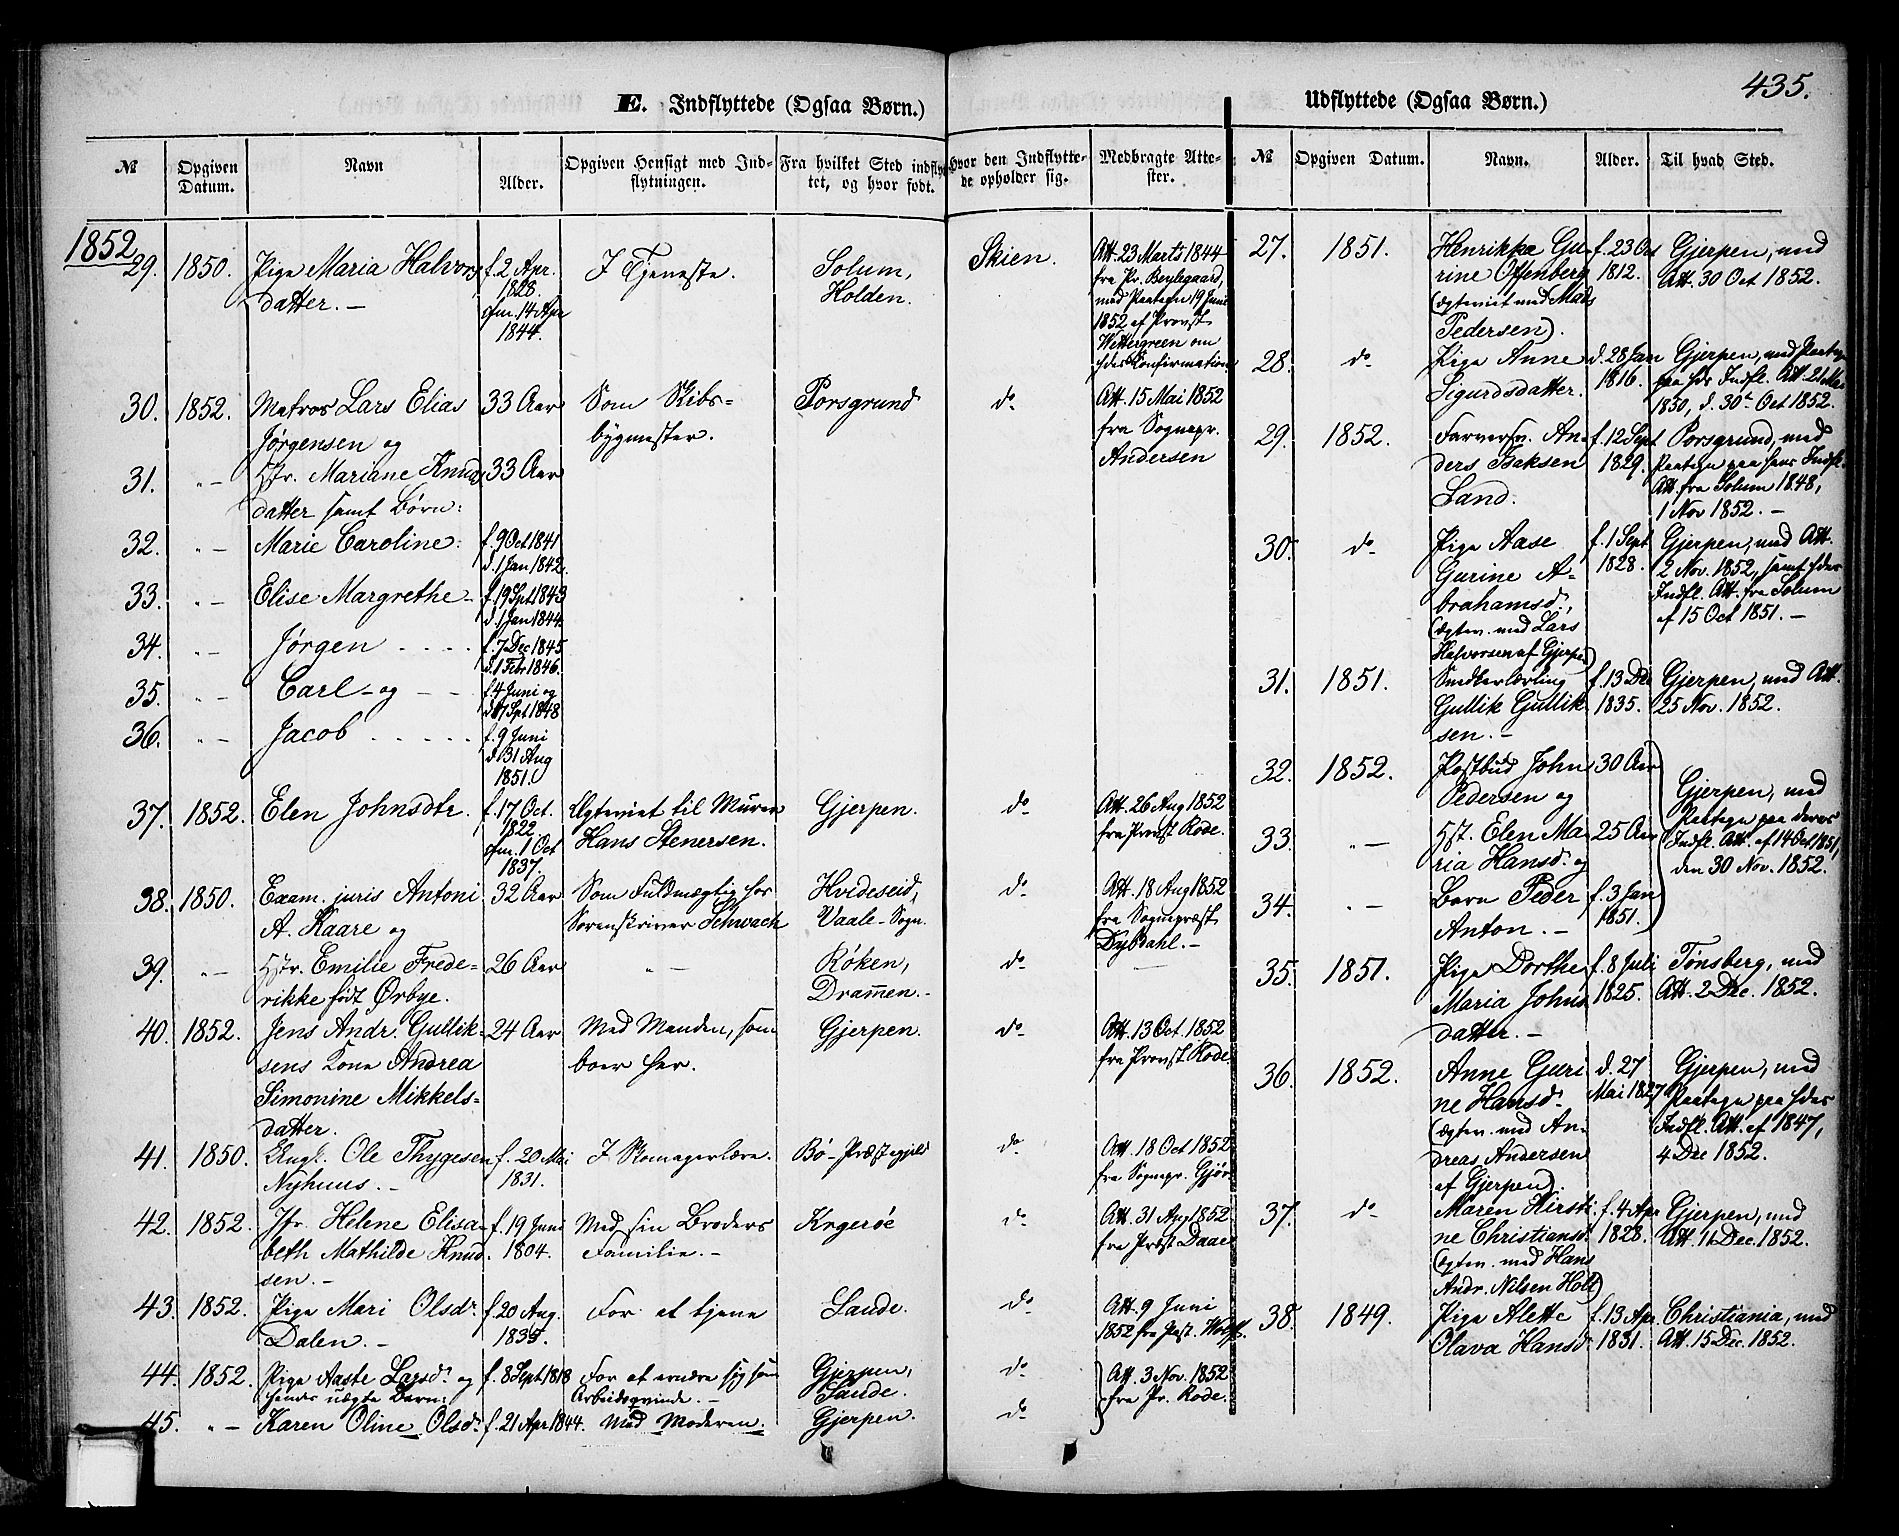 435.
E. Indflyttede (Ogsaa Børn.)
№
Opgiven Datum.
Navn
Alder.
Opgiven Hensigt med Indflytningen.
Fra hvilket Sted indflyttet, og hvor født.
Hvor den Indflyttede opholder sig.
Medbragte Attester.
1852
29. 1850. Pige Maria Halvors- f. 2 Apr. I Tjeneste. Solum, Skien. Att. 23 Marts 1844
datter. — 1828. Holden. fra Pr. Beylegaard,
cfm. 14 Apr med Paategn 19 Juni
1844. 1852 af Provst
Wettergreen om
hdes Confirmation.
30. 1852. Matros Lars Elias 33 Aar Som Skibs= Porsgrund do Att. 15 Mai 1852
Jørgensen og bygmester. fra Sognepr.
31. "– Hstr. Mariane Knuds 33 Aar Andersen
datter samt Børn:
32. "– Marie Caroline: f. 9 Oct 1841
d. 1 Jan 1842.
33. "– Elise Margrethe – f. 19 Spt 1843
d. 1 Jan 1844.
34. "– Jørgen . . . . f. 7 Dec 1845
d. 1 Febr 1846.
35. "– Carl – og – – f. 4 Juni og
d. 17 Spt 1848
36. "– Jacob . . . . . f. 9 Juni
d. 31 Aug
1851.
37. 1852. Elen Johnsdtr. f. 17 Oct. Ægteviet til Murer Gjerpen. do Att. 26 Aug 1852
1822. Hans Stenersen. fra Provst Rode.
cfm. 1 Oct
1837.
38. 1850. Exam. juris Antoni 32 Aar Som Fuldmægtig hos Hvideseid, do Att. 18 Aug 1852
A. Kaare og Sorenskriver Schwach Vaale-Sogn. fra Sognepræst
Dybdahl. –
39. "– Hstr. Emilie Frede= 26 Aar "– Røken, do —
rikke født Ørbye. Drammen. –
40. 1852. Jens Andr. Gullik= 24 Aar Med Manden, som Gjerpen. do Att. 13 Oct. 1852
sens Kone Andrea boer her. fra Provst Rode.
Simonine Mikkels=
datter.
41. 1850. Ungk. Ole Thygesen f. 20 Mai I Skomagerlære. Bø-Præstegjeld do Att. 18 Oct 1852
Nyhuus. – 1831. fra Sognepr. Gjør
42. 1852. Jfr. Helene Elisa= f. 19 Juni Med sin Broders Krgerøe do Att. 31 Aug 1852
beth Mathilde Knud 1804. Familie. – fra Præst Daae
sen. –
43. 1852. Pige Mari Olsdr. f. 20 Aug. For at tjene Sande. do Att. 9 Juni
Dalen. – 1835. 1852 fra Past. Wolff.
44. 1852. Pige Aaste Larsd. og f. 8 Sept 1818 For at ernære sig som Gjerpen, do Att. 3 Nov. 1852
hendes uægte Barn: Arbeidsqvinde. – Sande. fra Pr. Rode.
45. "– Karen Oline Olsd. f. 21 Apr 1844. Med Moderen. Gjerpen. do
Udflyttede (Ogsaa Børn.)
№
Opgiven Datum.
Navn.
Alder.
Til hvad Sted.
27. 1851. Henrikka Gu- f. 23 Oct Gjerpen, med
rine Offenberg 1812. Att. 30 Oct 1852.
(ægteviet med Mads
Pedersen).
28. do Pige Anne d. 28 Jan Gjerpen, med Paategn
Sigurdsdatter. 1816. paa hds Indfl. Att. 21 Mai
1850, d. 30te Oct 1852.
29. 1852. Farversv. An- f. 12 Sept Porsgrund, med
ders Isaksen 1829. Paategn paa hans Indfl.
Land. Att. fra Solum 1848,
1 Nov 1852. –
30. do Pige Aase f. 1 Sept Gjerpen, med Att.
Gurine A- 1828. 2 Nov. 1852, samt hdes
brahamsd, Indfl. Att. fra Solum
(ægtev. med Lars af 15 Oct 1851. –
Halvorsen af Gjerpen)
31. 1851. Snedkerlærling f. 13 Dec Gjerpen, med Att.
Gullik Gullik 1835. 25 Nov. 1852.
sen. –
32. 1852. Postbud John 30 Aar Gjerpen, med
Pedersen og Paategn paa deres
33. "– Hst. Elen Ma 25 Aar Indfl. Att. af 14 Oct 1851,
ria Hansd. og den 30 Nov. 1852.
34. "– Barn Peder f. 3 Jan
Anton. – 1851.
35. 1851. Pige Dorthe f. 8 Juli Tønsberg, med
Maria Johns 1825. Att. 2 Dec. 1852.
datter. –
36. 1852. Anne Guri d. 27 Gjerpen, med
ne Hansd. Mai 1827 Paategn paa hdes
(ægtev. med An- Indfl. Att. af 1847,
dreas Andersen 4 Dec 1852.
af Gjerpen).
37. do Maren Kirsti f. 4 Apr Gjerpen, med
ne Christiansd. 1828. Att. 11 Dec. 1852.
(ægtev. med Hans
Andr. Nilsen Holt)
38. 1849. Pige Alette f. 13 Apr. Christiania, med
Olava Hansd. 1831. Att. 15 Dec. 1852.